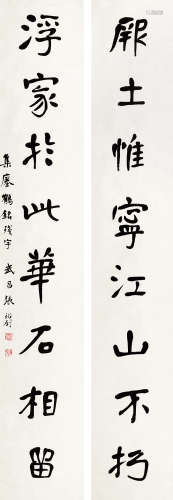 厥土惟寧江山不朽
浮家於此華石相留
集瘞鶴銘殘字 武昌張裕釗